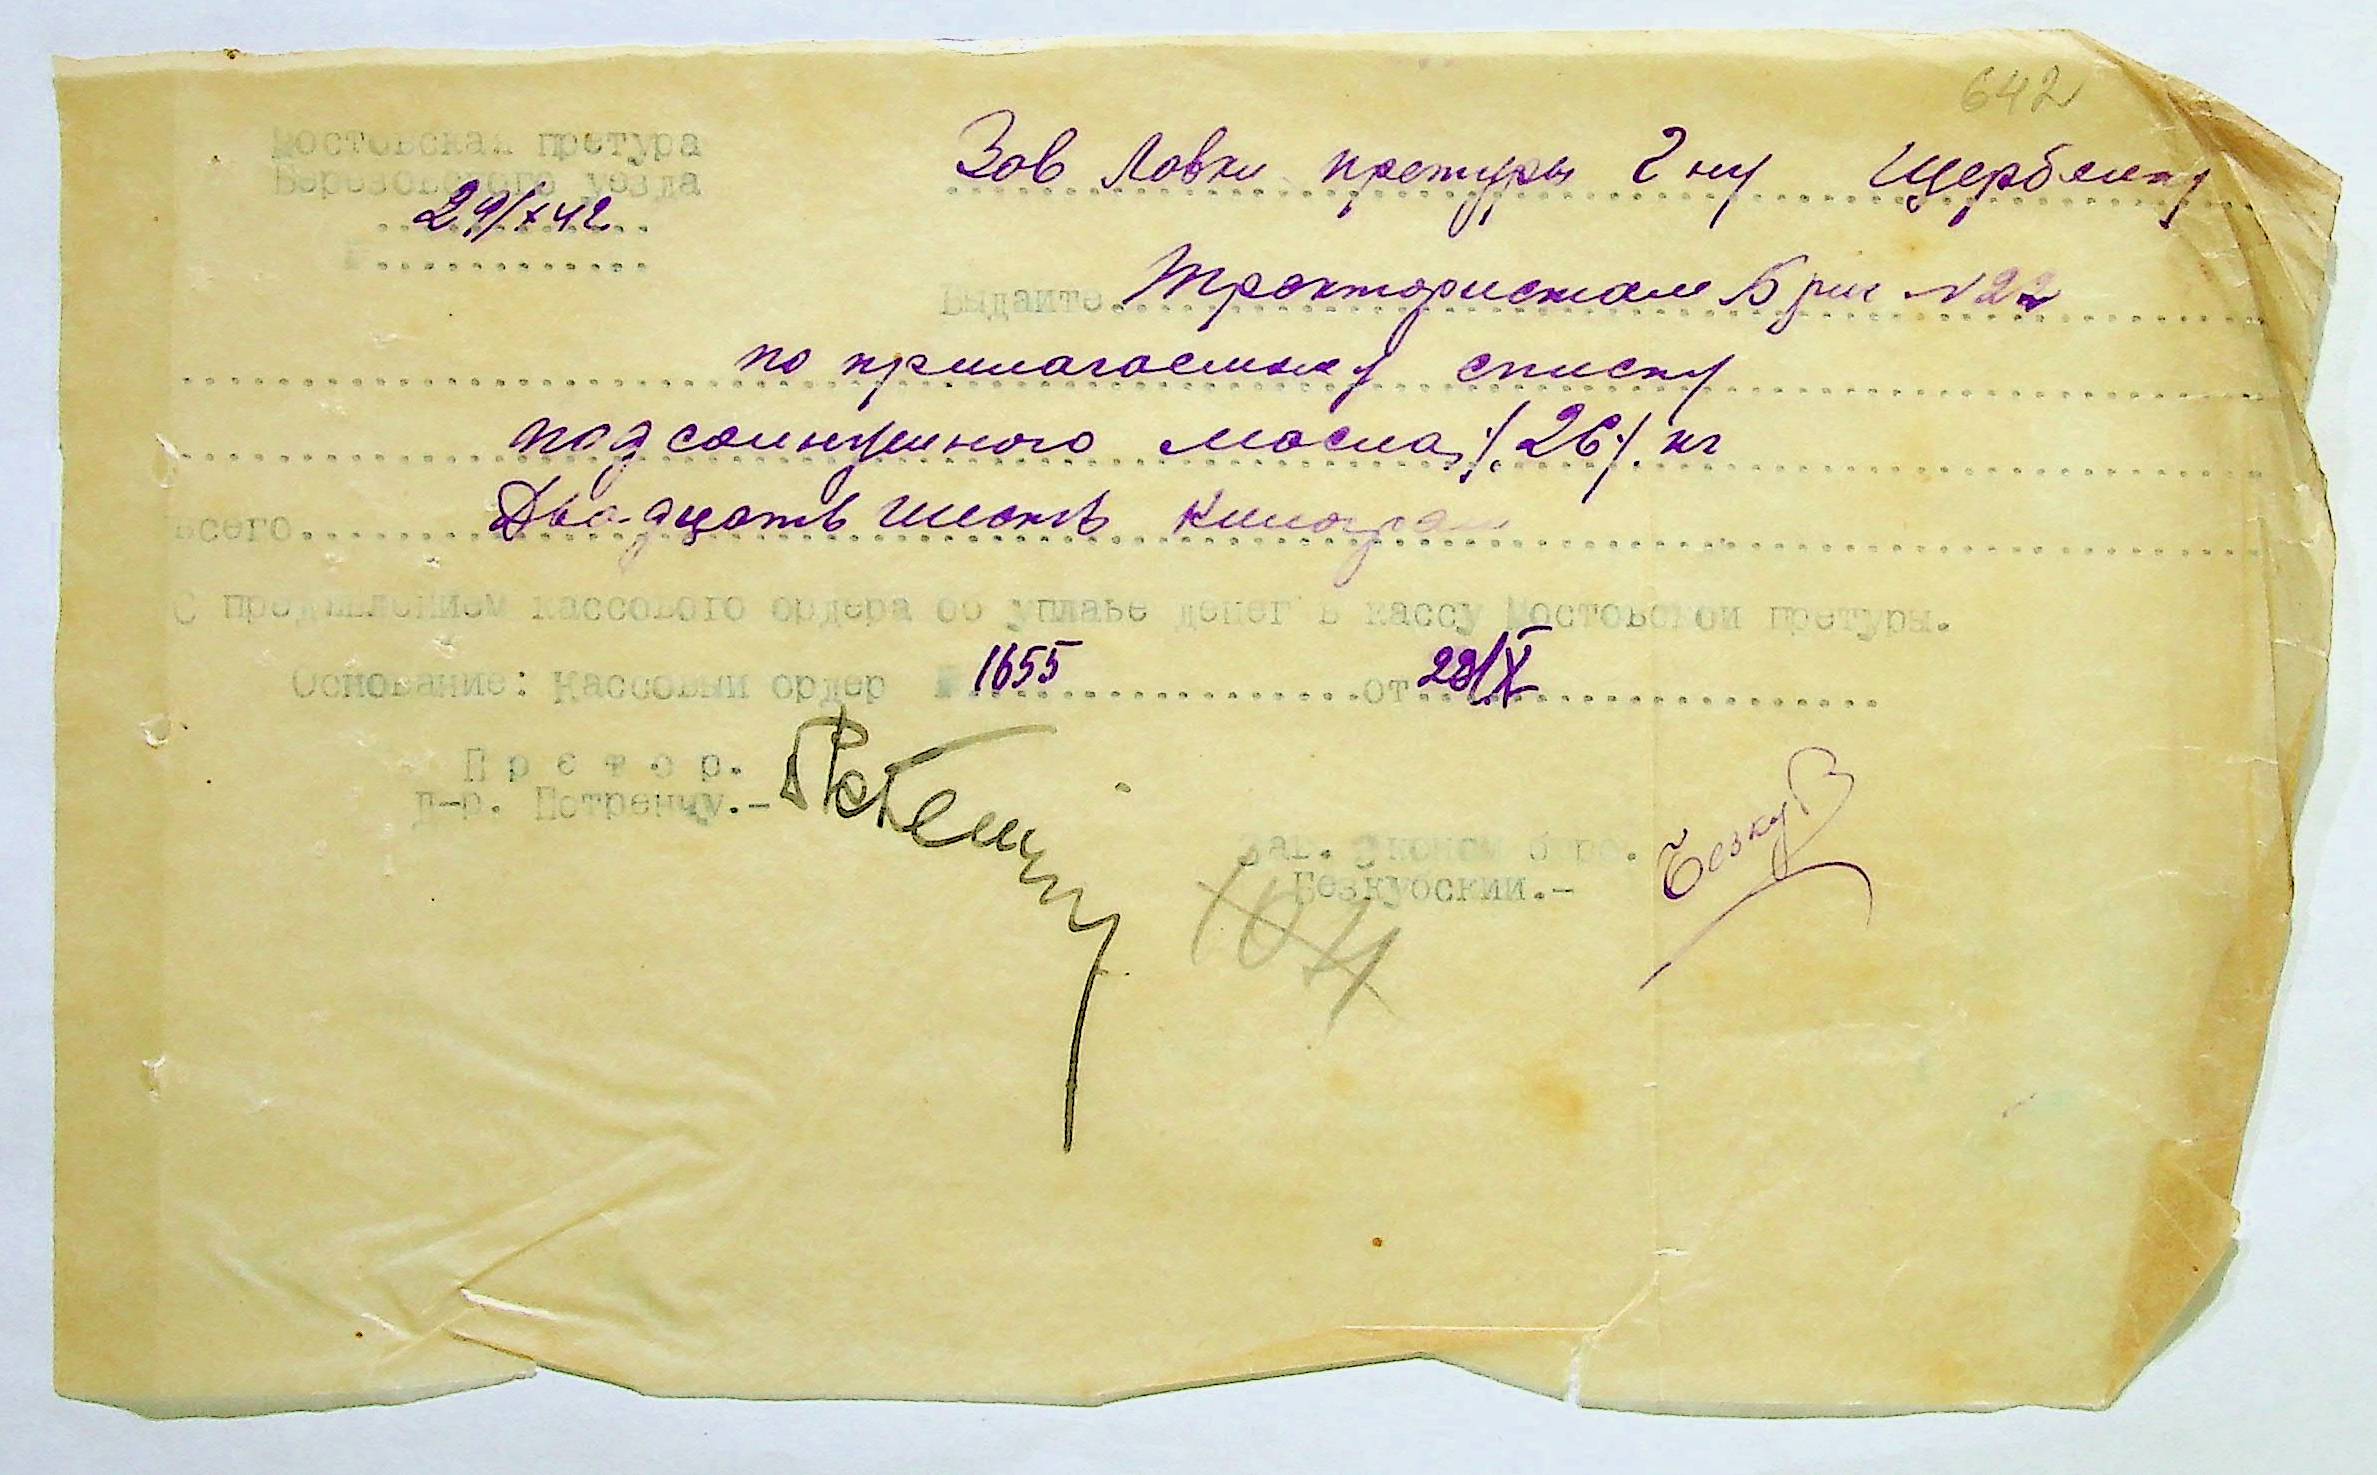 642
Мостовская претура
Березовского уезда
29/X 42
Зав Лавки претуры Г ну Щербелку
Выдайте Трактористам Бриг N 22
по прилагаемому списку
подсолнушного масла ./. 26 ./. кг
Всего Двадцать шесть килограм
С предъявлением кассового ордера об уплате денег в кассу Мостовской претуры.
Основание: Кассовый ордер № 1655 от 28/X
Претор.
Д-р. Потренчу.-
Зав. Эконом бюро.
Безкубский.-
Безкуб
104